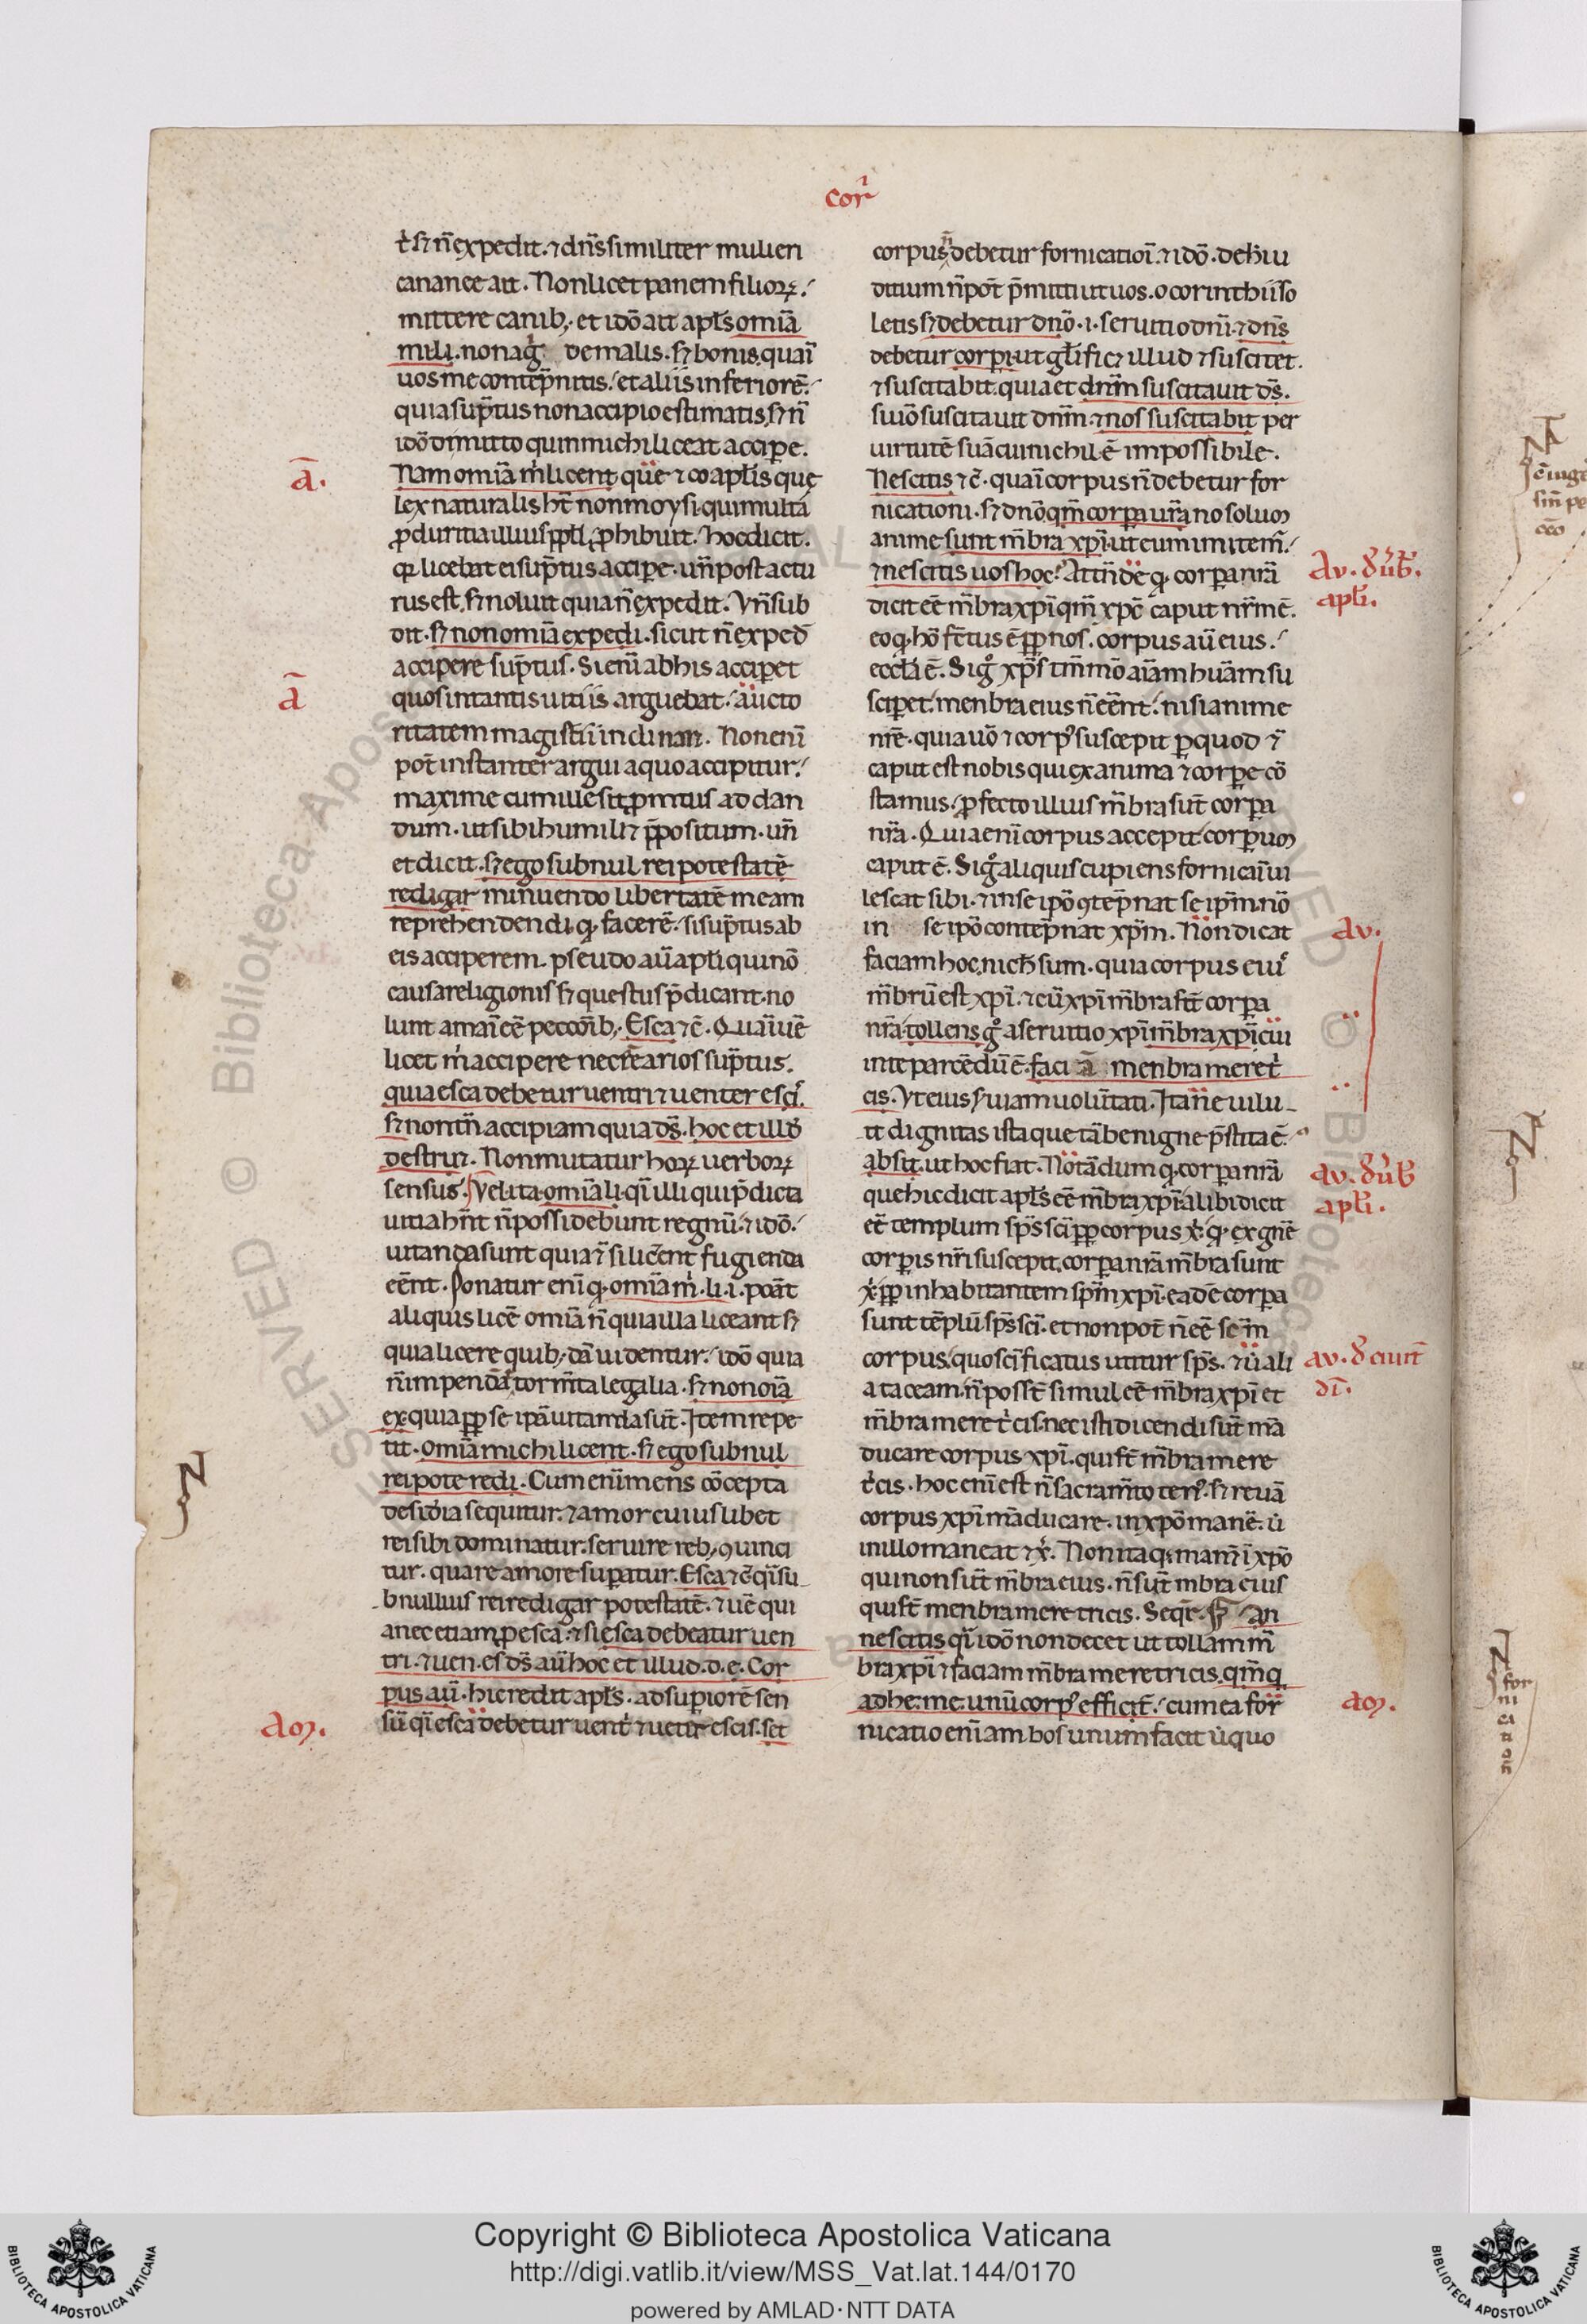 Cor͛
t͛ sꝫ n̄ expedit. ⁊ dn̄s similiter mulieri
cananee ait. Non licet panem filioꝝ.
mittere canib; et idō ait apl̄s omīa
mi li. non ag̊ de malis. sꝫ bonis, quaī
uos me contēpnitis. et aliis inferiorē.
quia sūptus non accipio estimatis, sꝫ n̄
idō dimitto quin michi liceat accipe.
Nam omīa m̍ licent que ⁊ coapl̄is que
lex naturalis hꝫ non moysi qui multa
ꝓ duritia illius ppl̄i ꝓhibuit. Hoc dicit.
qꝛ licebat ei sūptus accipe. un̄ post actu
rus est, sꝫ noluit quia n̄ expedit. Vn̄ sub
dit. sꝫ non omīa expedi. sicut n̄ exped̄
accipere sūptus. Si enī ab his acciperet
quos in tantis uitiis arguebat. aucto
ritatem magistī inclinari. Non enī
pot̄ instanter argui a quo accipitur.
maxime cum ille sit promtus ad dan
dum. ut sibi humiliꝫ p̄positum. un̄
et dicit. sꝫ ego sub nul rei potestatē
redigar minuendo libertatē meam
reprehendendi, qꝫ facerē. si sūptus ab
eis acciperem. pseudo aū apl̄i qui nō
causa religionis sꝫ questus p̄dicant. no
lunt a maīcē peccōib; Esca ⁊c̄. Quāuē
licet m̍ accipere necēarios sūptus.
quia esca debetur uentri ⁊ uenter escī.
sꝫ non tn̄ accipiam quia ds̄. hoc et illd̄
destruꝫ. Non mutatur hoꝝ uerboꝝ
sensus. Vel ita omīa li. qī illi qui p̄dicta
uitia hn̄t n̄ possidebunt regnū. ⁊ idō.
uitanda sunt quia ⁊ si licēnt fugienda
eēnt. ponatur enī qꝫ omīa m̍. li. i. poāt
aliquis licē omīa n̄ quia illa liceant sꝫ
quia licere quib;dā uidentur. idō quia
n̄ impendāt tormīta legalia. sꝫ non oīa
ex. quia ꝑꝑ se ipā uitanda sūt. Item repe
tit. omīa michi licent. sꝫ ego sub nul
rei pote redi. Cum enī mens cōcepta
desidīa sequitur. ⁊ amor cuiuslibet
rei sibi dominatur. seruire reb; ꝯuinci
tur. quare amore supatur. Esca ⁊c̄ qī su
b nullius rei redigar potestatē. ⁊ uē qui
a nec etiam p esca. ⁊ si esca debeatur uen
tri. ⁊ uen. es ds̄ aū hoc et illud. d. e. Cor
pus aū. hic redit apl̄s. ad supiorē sen
sū qī esca debetur uent͛ ⁊ uēter escis. set
corpus n̄ debetur fornicatioī. ⁊ idō. de h̍ iu
ditium n̄ pot̄ p̄mitti ut uos. o corinthii so
letis sꝫ debetur dnō. i. seruitio dnī. ⁊ dn̄s
debetur corpi. ut gl̄ificꝫ illud ⁊ suscitet.
⁊ suscitabit. quia et dnm̄ suscitauit ds̄.
si uō suscitauit dnm̄. ⁊ nos suscitabit per
uirtutē suā cui nichil ē impossibile.
Nescitis ⁊c̄. quaī corpus n̄ debetur for
nicationi. sꝫ dnō qm̄ corpa ur̄a no solum
anime sunt mb̄ra xpī. ut eum imitem̄.
⁊ nescitis uos hoc? Attn̄dē qꝫ corpa nr̄a
dicit eē mb̄ra xpī qm̄ xpc̄ caput nrm̄ ē.
eo qꝫ hō fctus ē ꝑꝑ nos. corpus aū eius.
eccl̄ia ē. Sig̊ xps̄ tm̄mō aīam huāam su
sciperet. menbra eius n̄ eēnt. nisi anime
nr̄e. quia uō ⁊ corpꝰ suscepit p quod ⁊
caput est nobis qui ex anima ⁊ corpe cō
stamus. ꝓfecto illius mb̄ra sūt corpa
nr̄a. Quia enī corpus accepit. corpum
caput ē. Sig̊ aliquis cupiens fornicari ui
lescat sibi. ⁊ in se ipō ꝯtēpnat se ipm̄. nō
in se ipō contēpnat xpm̄. Non dicat
faciam hoc, nich̄ sum. quia corpus eui͛
mb̄rū est xpī. ⁊ cū xpī mb̄ra sīt corpa
nr̄a. tollens g̊ a seruitio xpī mb̄ra xpī cui
in te parcēdū ē. faciā menbra meret͛
cis. Vt eius seruiam uolūtati. Itane uilu
it dignitas ista que tā benigne p̄stita ē.
absit. ut hoc fiat. Notādum qꝫ corpa nr̄a
que hic dicit apl̄s eē mb̄ra xpī. alibi dicit
eē templum sps̄ scī ꝑꝑ corpus x̍. qꝫ ex gn̄e
corpis nr̄i suscepit. corpa nr̄a mb̄ra sunt
x̍ ꝑꝑ inhabitantem spm̄ xpī. eadē corpa
sunt tēplū sps̄ scī. et non pot̄ n̄ eē scm̄
corpus, quo scīficatus utitur sps̄. ⁊ ū ali
a taceam. n̄ possēt simul eē mb̄ra xpī et
mb̄ra meret͛cis. nec isti dicendi sūt mā
ducare corpus xpī. qui sīt mb̄ra mere
t͛cis. hoc enī est n̄ sacramīto ten͛. sꝫ re uā
corpus xpī māducare. in xpō manē. ū
in illo maneat ⁊ x̍. Non itaqꝫ manꝫ ī xpō
qui non sūt mb̄ra eius. n̄ sūt mbra eius
qui sīt menbra meretricis. Seqr̄. An
nescitis qī idō non decet ut tollam m̄
bra xpī ⁊ faciam mb̄ra meretricis, qm̄ q
adhe. me. unū corpꝰ efficit̄. cum ea for
nicatio enī ambos unum facit ū quo
ā.
ā
N
Am.
Av. d̍ ūb̄.
apl̄i.
Av.
Av. d̍ ūb̄
apl̄i.
av. d̍ ciuit̄
dī.
am.
for
ni
ca
Copyright © Biblioteca Apostolica Vaticana
http://digi.vatlib.it/view/MSS_Vat.lat.144/0170
powered by AMLAD·NTT DATA
BIBLIOTECA APOSTOLICA VATICANA
BIBLIOTECA APOSTOLICA VATICANA